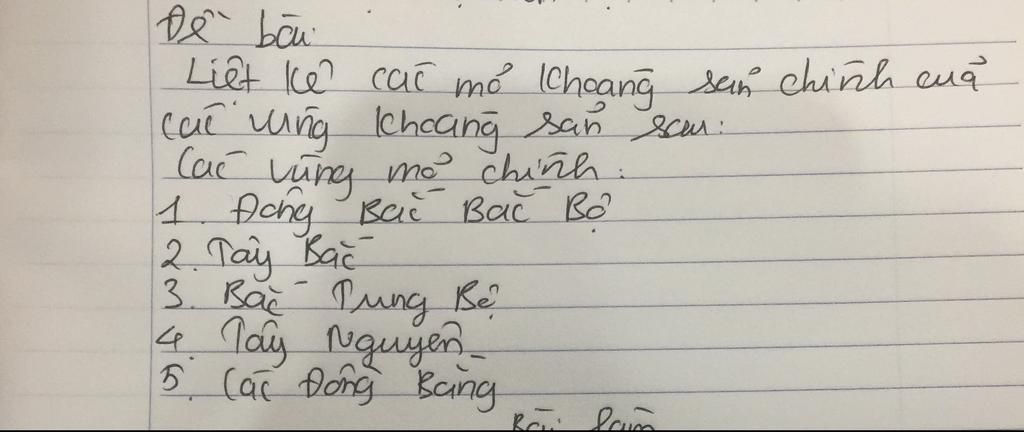 Đề bài:
Liệt kê các mỏ khoáng sản chính của
các vùng khoáng sản sau:
Các vùng mỏ chính:
1. Đông Bắc Bắc Bộ
2. Tây Bắc
3. Bắc Trung Bộ
4. Tây Nguyên
5. Các Đồng Bằng
Bài làm